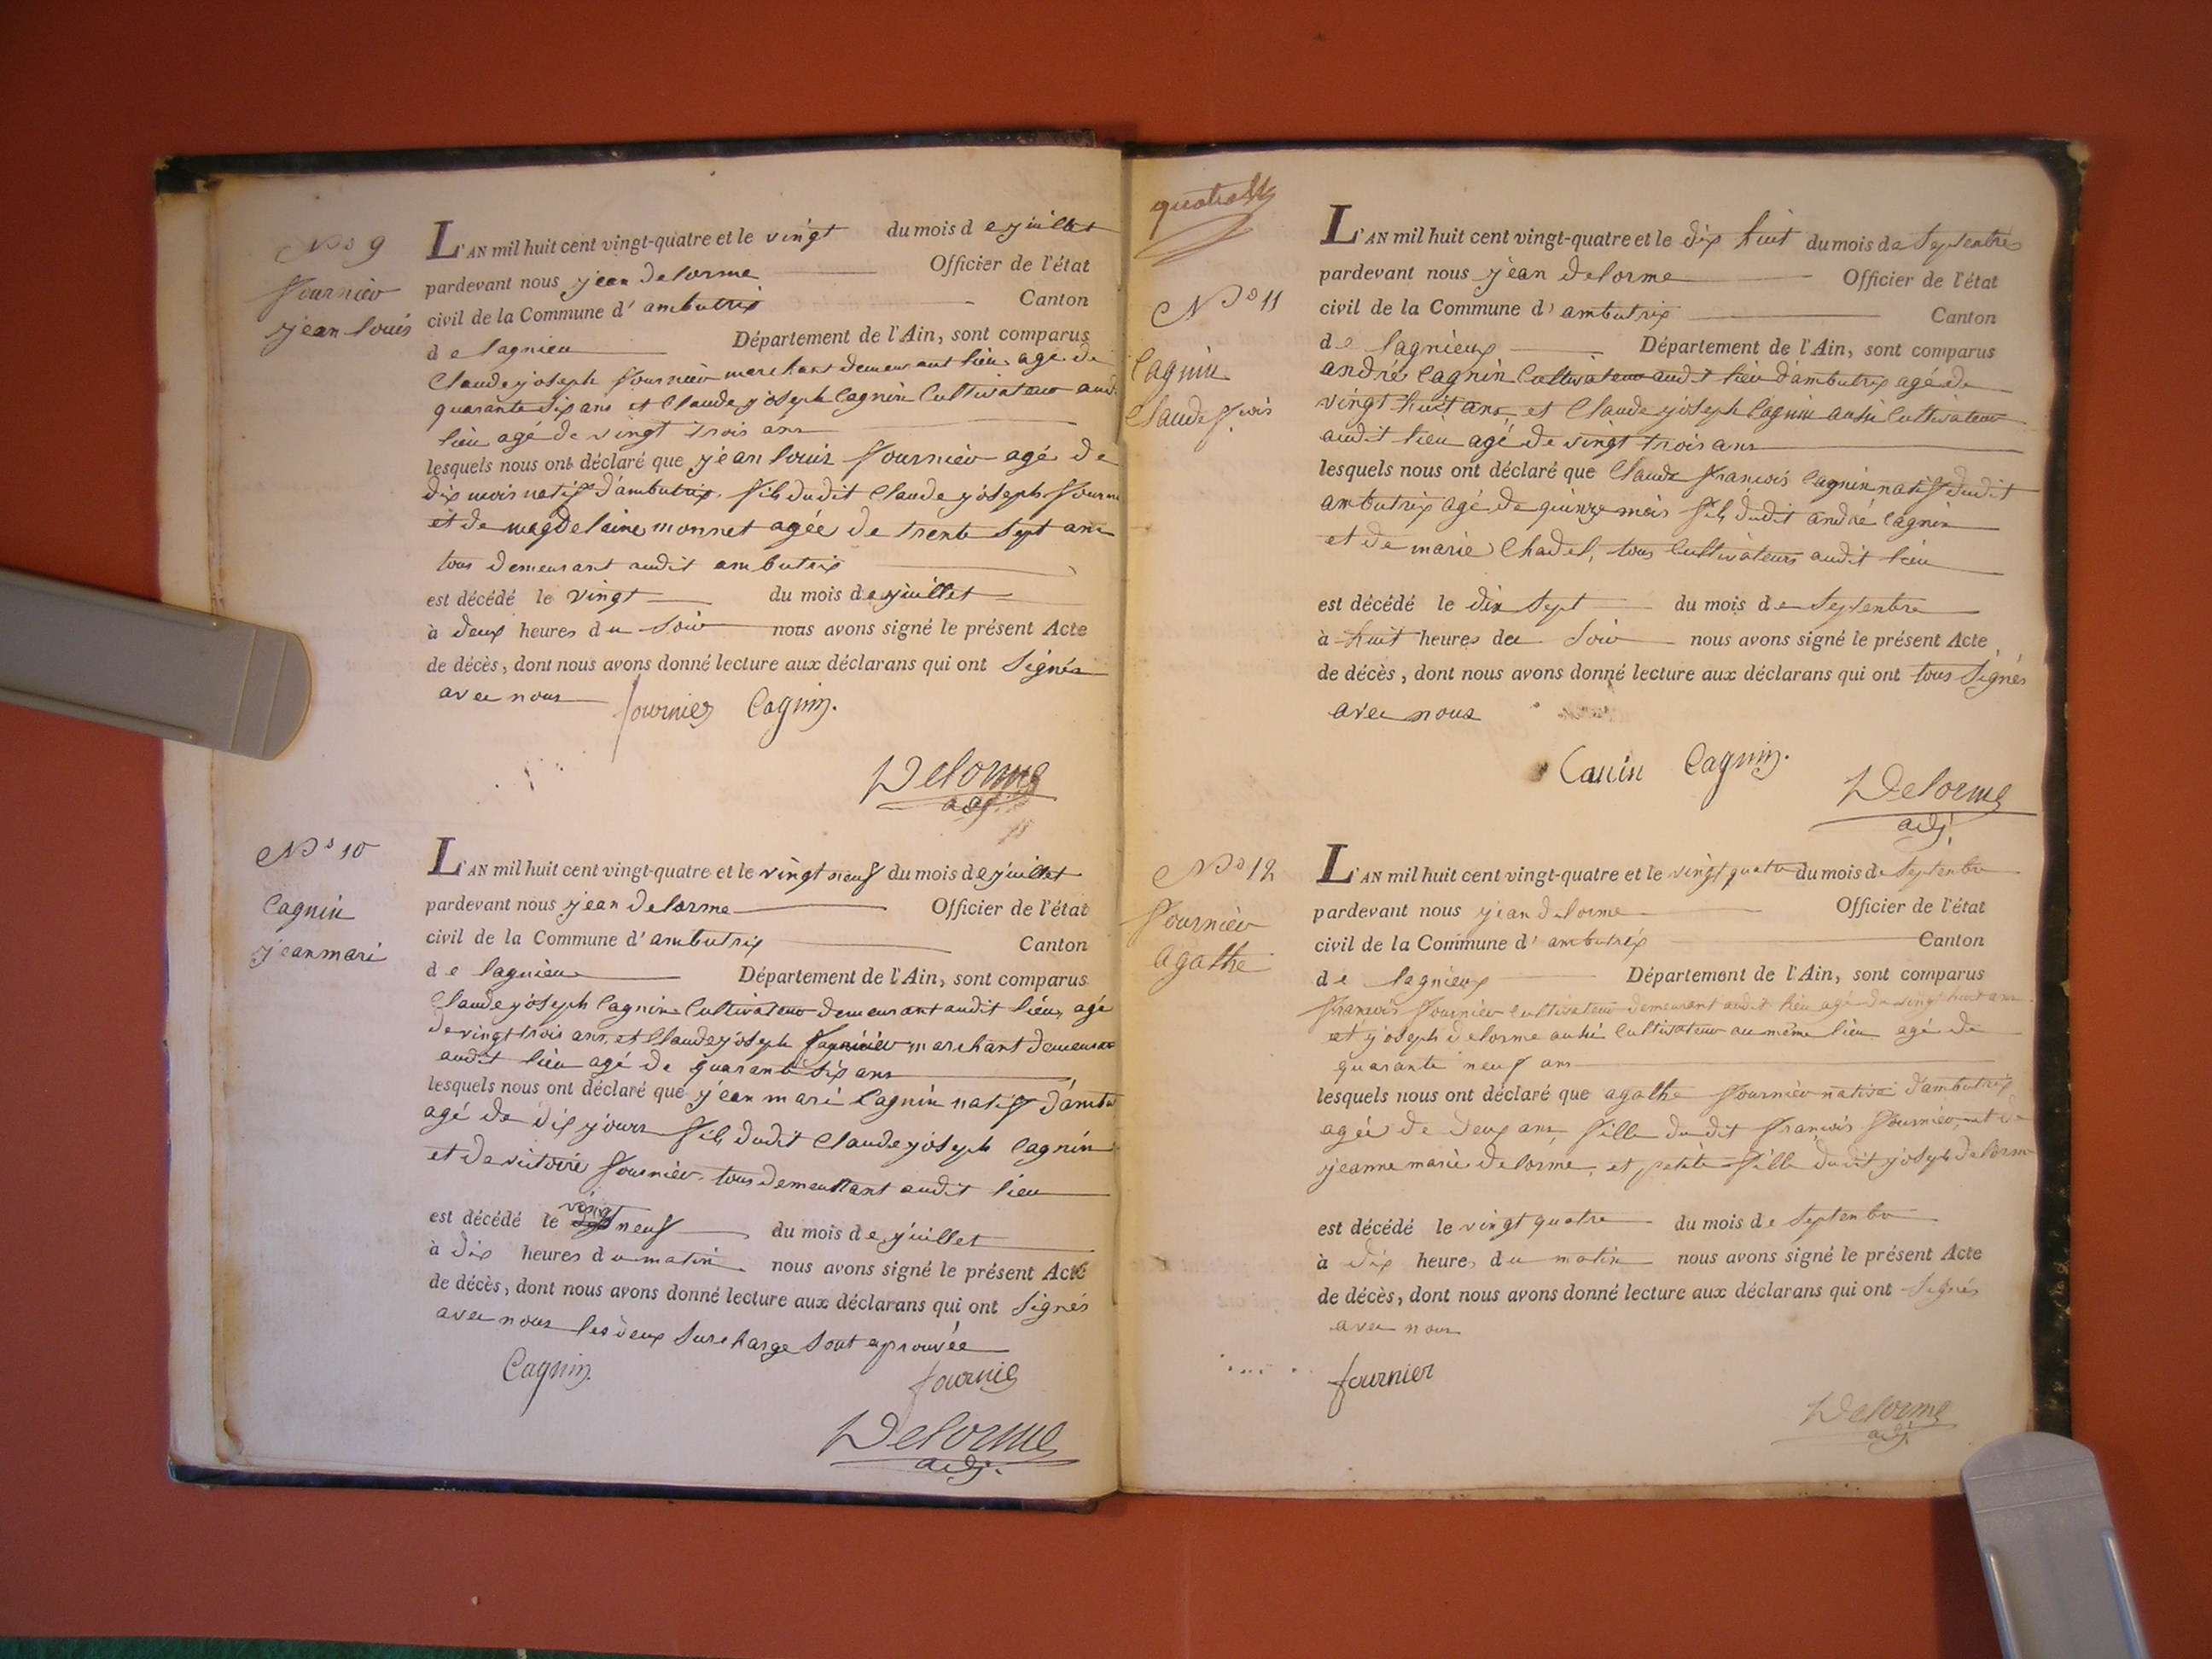 No 9
fournier
jean louis
L'AN mil huit cent vingt-quatre et le vingt du mois de juillet
pardevant nous jean delorme Officier de l'état
civil de la Commune d'ambutrix Canton
de lagnieu Département de l'Ain, sont comparus
Claude joseph fournier marchant demeurant audit lieu agé de
quarante six ans et Claude joseph Cagnin Cultivateur aud.
lieu agé de vingt trois ans
lesquels nous ont déclaré que jean louis fournier agé de
dix mois natif d'ambutrix, fils dudit Claude joseph fourni
et de magdelaine monnet agée de trente sept ans
tous demeurant audit ambutrix
est décédé le vingt du mois de juillet
à deux heures du soir nous avons signé le présent Acte
de décès, dont nous avons donné lecture aux déclarans qui ont signés
avec nous fournier Cagnin.
Delorme
adj.
No 10
Cagnin
jean mari
L'AN mil huit cent vingt-quatre et le vingt neuf du mois de juillet
pardevant nous jean delorme Officier de l'état
civil de la Commune d'ambutrix Canton
de lagnieu Département de l'Ain, sont comparus
Claude joseph Cagnin Cultivateur demeurant audit lieu, agé
de vingt trois ans, et Claude joseph fournier marchant demeurant
audit lieu agé de quarante six ans
lesquels nous ont déclaré que jean mari Cagnin natif d'ambu
agé de dix jours fils dudit Claude joseph Cagnin
et de victoire fournier, tous demeurant audit lieu
vingt
est décédé le neuf du mois de juillet
à dix heures du matin nous avons signé le présent Acte
de décès, dont nous avons donné lecture aux déclarans qui ont signés
avec nous les deux surcharge sont aprouvée
Cagnin. fournier
Delorme
adj.
quatre
No 11
Cagnin
Claude fcois
L'AN mil huit cent vingt-quatre et le dix huit du mois de septembre
pardevant nous jean delorme Officier de l'état
civil de la Commune d'ambutrix Canton
de lagnieux Département de l'Ain, sont comparus
andré Cagnin Cultivateur audit lieu d'ambutrix agé de
vingt huit ans, et Claude joseph Cagnin aussi Cultivateur
audit lieu agé de vingt trois ans
lesquels nous ont déclaré que Claude francois Cagnin natif dudit
ambutrix agé de quinze mois fils dudit andré Cagnin
et de marie Chadel, tous Cultivateurs audit lieu
est décédé le dix sept du mois de septembre
à huit heures du soir nous avons signé le présent Acte
de décès, dont nous avons donné lecture aux déclarans qui ont tous signés
avec nous
Canin Cagnin.
Delorme
adj.
No 12
fournier
agathe
L'AN mil huit cent vingt-quatre et le vingt quatre du mois de septembre
pardevant nous jean delorme Officier de l'état
civil de la Commune d'ambutrix Canton
de lagnieux Département de l'Ain, sont comparus
francois fournier Cultivateur demeurant audit lieu agé de vingt huit ans
et joseph delorme aussi Cultivateur au même lieu agé de
quarante neuf ans
lesquels nous ont déclaré que agathe fournier native d'ambutrix
agée de deux ans, fille du dit francois fournier, et de
jeanne marie delorme, et petite fille dudit joseph delorme
est décédé le vingt quatre du mois de septembre
à dix heures du matin nous avons signé le présent Acte
de décès, dont nous avons donné lecture aux déclarans qui ont signés
avec nous
fournier
Delorme
adj.